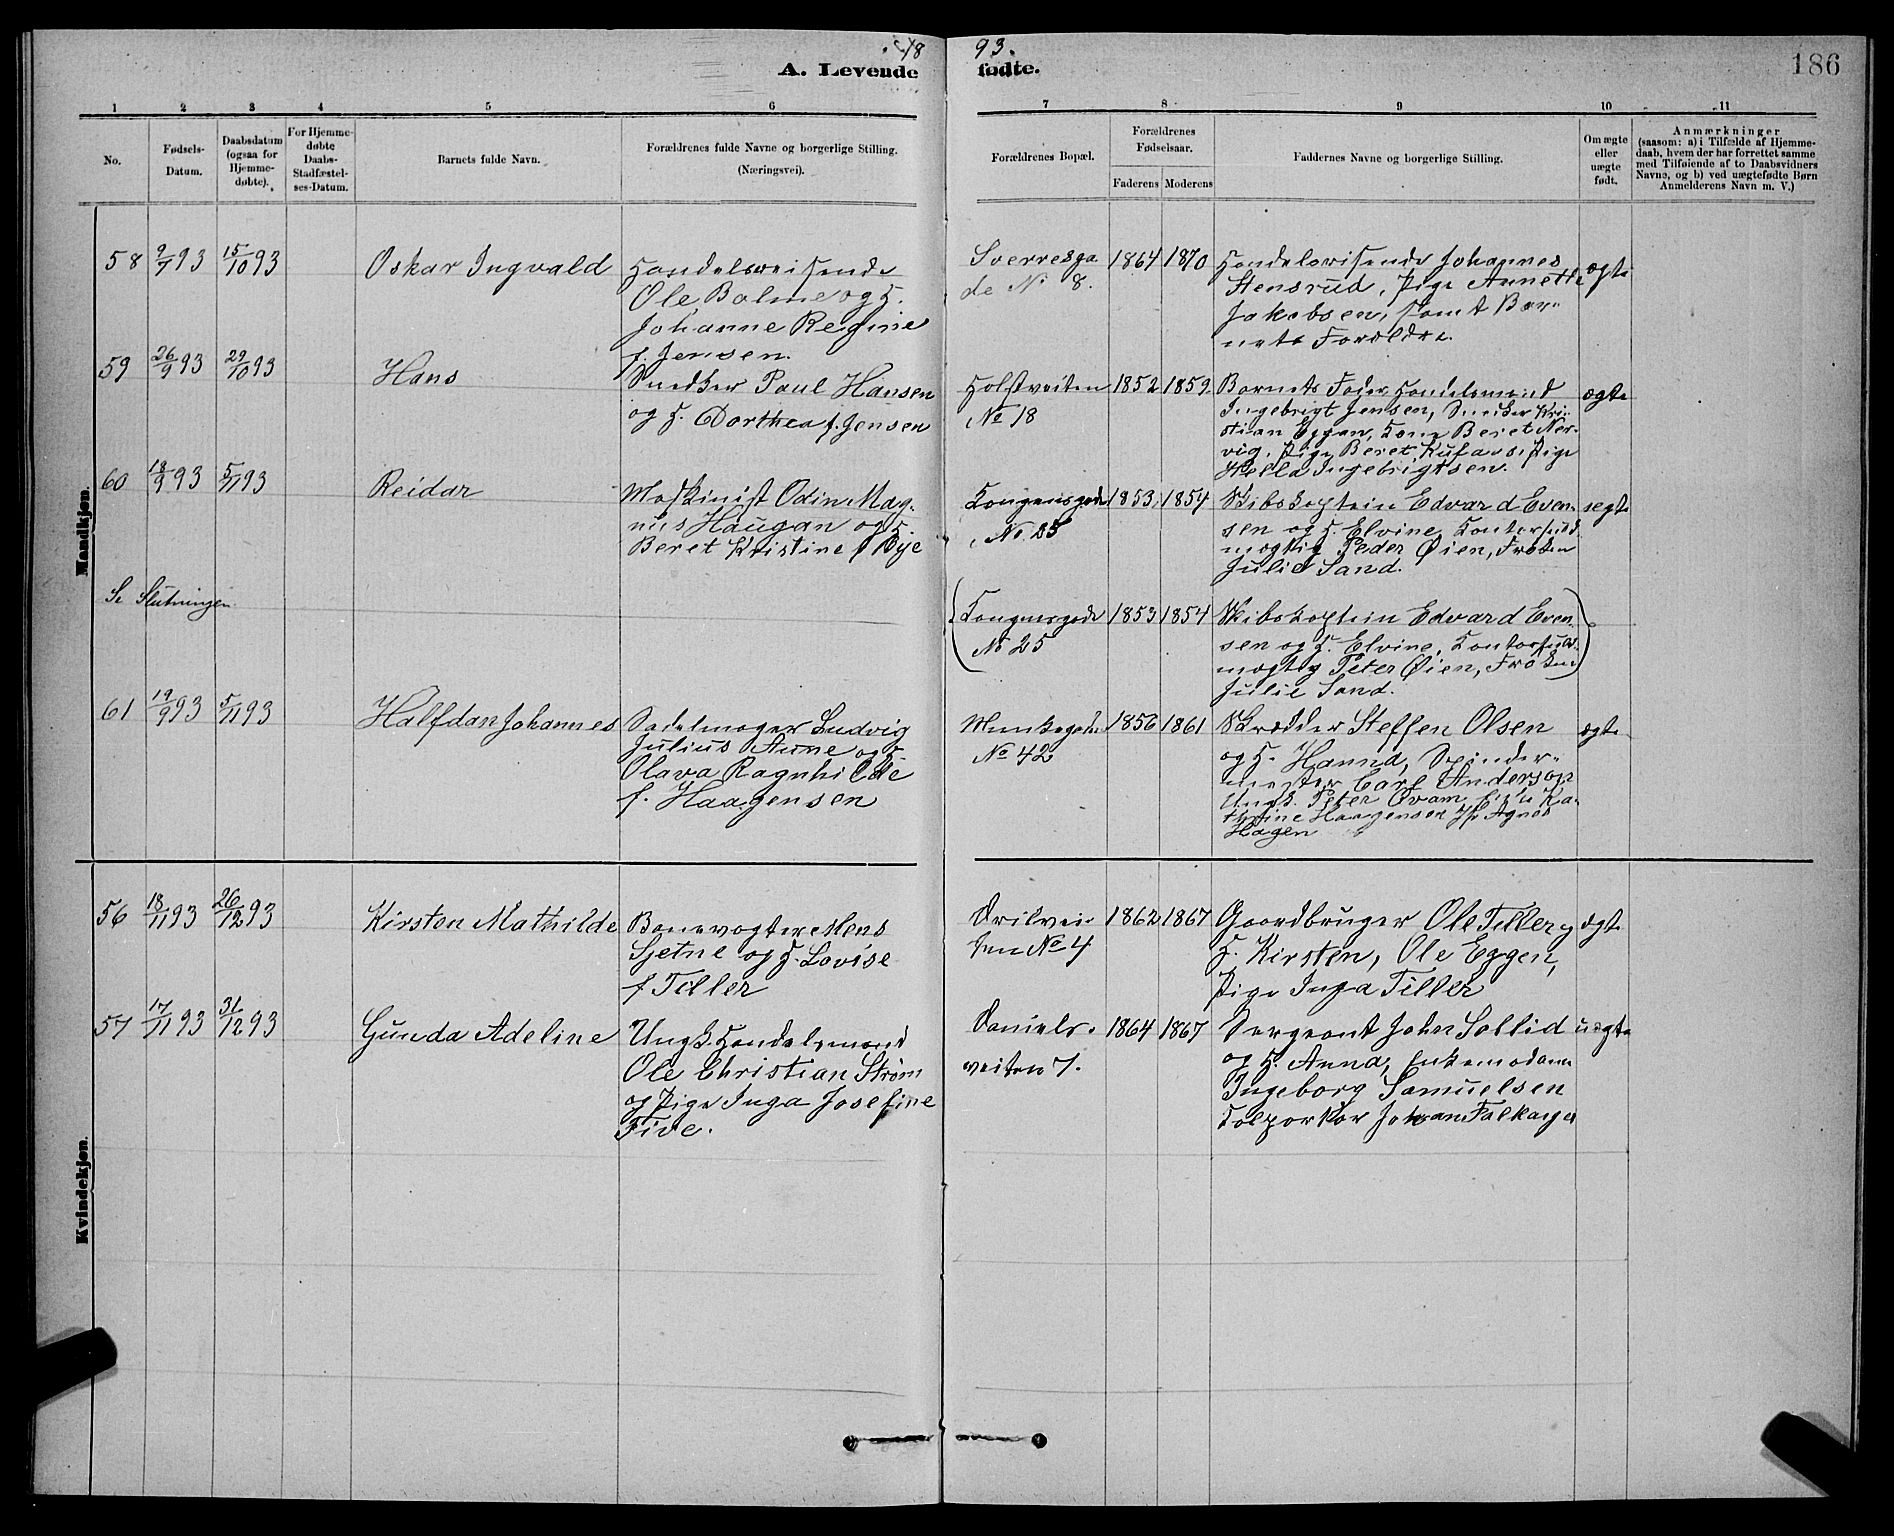 18 93.
A. Levende fødte.
186
1 2 3 4 5 6 7 8 9 10 11
No.
Fødsels-
Datum.
Daabsdatum
(ogsaa for
Hjemme-
døbte).
For Hjemme-
døbte
Daabs-
Stadfæstel-
ses-Datum.
Barnets fulde Navn.
Forældrenes fulde Navne og borgerlige Stilling.
(Næringsvei).
Forældrenes Bopæl.
Forældrenes
Fødselsaar.
Faderens Moderens
Faddernes Navne og borgerlige Stilling.
Om ægte
eller
uægte
født.
Anmærkninger
(saasom: a) i Tilfælde af Hjemme-
daab, hvem der har forrettet samme
med Tilføiende af to Daabsvidners
Navne, og b) ved uægtefødte Børn
Anmelderens Navn m. V.)
Mandkjøn.
58 9/7 93 15/10 93 Oskar Ingvald
Handelsreisende
Ole Bolme og H.
Johanne Regine
f. Jensen.
Sverresga
de No 8.
1864 1870
Handelsreisende Johannes
Stensrud, Pige Annette
Jakobsen, samt Bar-
nets Forældre.
ægte
59 26/9 93 29/10 93 Hans
Snedker Paul Hansen
og H. Dorthea f. Jensen
Holstveiten
No 18
1852 1859
Barnets Fader, Handelsmand
Ingebrigt Jensen, Snedker Kri-
stian Eggan, Kone Beret Ner-
vig, Pige Beret Pige
Ingebrigtsen.
ægte
60 18/9 93 5/11 93 Reidar
Maskinist Odin Mag-
nus Haugan og H.
Beret Kristine f. Bye
Kongensgade
No. 25
1853 1854
Skibskaptein Edvard Even-
sen og H. Elvine, Kontorfuld-
mægtig Peder Øien, Frøken
Julie Sand.
ægte
Se Slutningen.
(Kongensgade
No 25
1853 1854
Skibskaptein Edvard Even-
sen og H. Elvine, Kontorfuld-
mægtig Peter Øien, Frøken
Julie Sand.)
61 19/9 93 5/11 93 Halfdan Johannes
Sadelmager Ludvig
Julius Aune og H.
Olava Ragnhilde
f. Haagensen
Munkegaden
No 42
1856 1861
Skrædder Steffen Olsen
og H. Hanna, Spinder-
mester Carl Anderson
Ungk. Peter Ka-
thrine Haagensen Agnes
Hagen
ægte
Kvindekjøn.
56 18/11 93 26/12 93 Kirsten Mathilde
Banevogter Mons
Sjetne og H. Lovise
f. Tiller
Prilvei-
ten No 4
1862 1867
Gaardbruger Ole Tiller og
H. Kirsten, Ole Eggen,
Pige Inga Tiller
ægte
57 17/11 93 31/12 93 Gunda Adeline
Ungk. Handelsmand
Ole Christian Strøm
og Pige Inga Josefine
Five.
Daniels-
veiten 7.
1864 1867
Sergeant John Sollid
og H. Anna, Enkemadam
Ingeborg Samuelsen
Johan
uægte